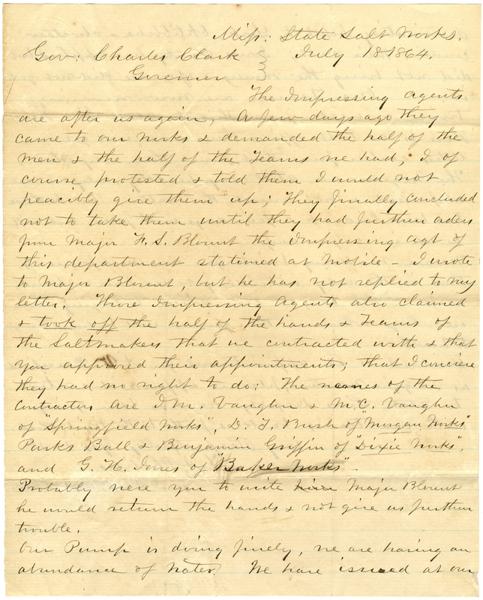 Miss: State Salt Works.
Gov: Charles Clark July 18 1864.
Governer
The Impressing agents
are after us again, A few days ago they
came to our works & demanded the half of the
men & the half of the Teams we had, I of
course protested & told them I would not
peacibly give them up; They finally concluded
not to take them until they had further orders
from Major F. S. Blount the Impressing agt of
this department stationed at Mobile – I wrote
to Major Blount, but he has not replied to my
letter. Those Impressing Agents also claimed
& took off the half of the hands & Teams of
the Saltmakers that we contracted with & that
you approved their appointments; that I concieve
they had no right to do: The names of the
Contractors are J. M. Vaughn & M. C. Vaughn
of "Springfield Works", D. J. Rush of "Morgan Works"
Parks Ball & Benjamin Griffin of "Dixie Works",
and G. H. Jones of "Baker Works" –
Probably were you to write Major Blount
he would return the hands & not give us further
trouble.
Our Pump is doing finely, we are having an
abundance of water. We have issued at our